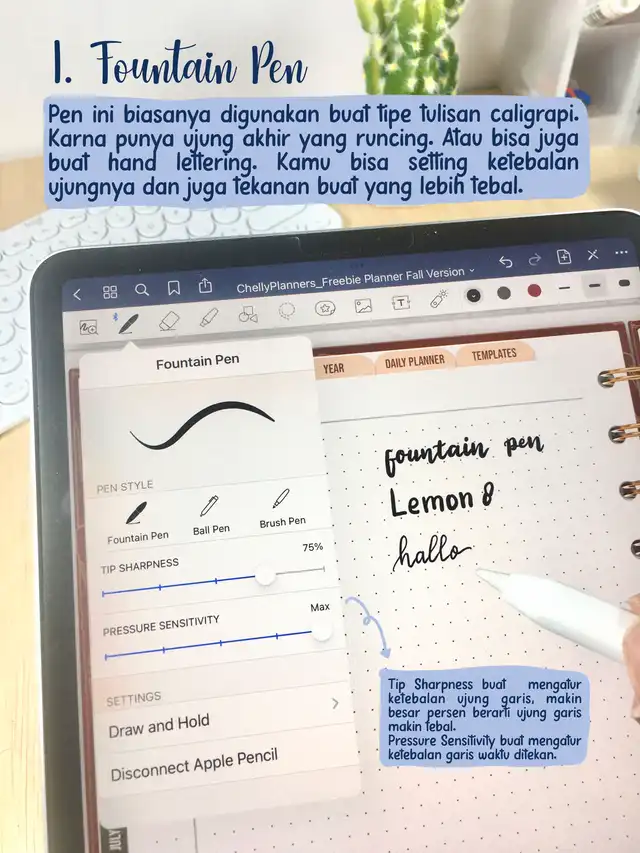 1. Fountain Pen
Pen ini biasanya digunakan buat tipe tulisan caligrapi.
Karna punya ujung akhir yang runcing. Atau bisa juga
buat hand lettering. Kamu bisa setting ketebalan
ujungnya dan juga tekanan buat yang lebih tebal.
ChellyPlanners_Freebie Planner Fall Version
Fountain Pen
YEAR
DAILY PLANNER
TEMPLATES
PEN STYLE
Fountain Pen
Ball Pen
Brush Pen
TIP SHARPNESS
75%
PRESSURE SENSITIVITY
Max
SETTINGS
Draw and Hold
Disconnect Apple Pencil
fountain pen
Lemon 8
hallo
Tip Sharpness buat mengatur
ketebalan ujung garis, makin
besar persen berarti ujung garis
makin tebal.
Pressure Sensitivity buat mengatur
ketebalan garis waktu ditekan.
JULY